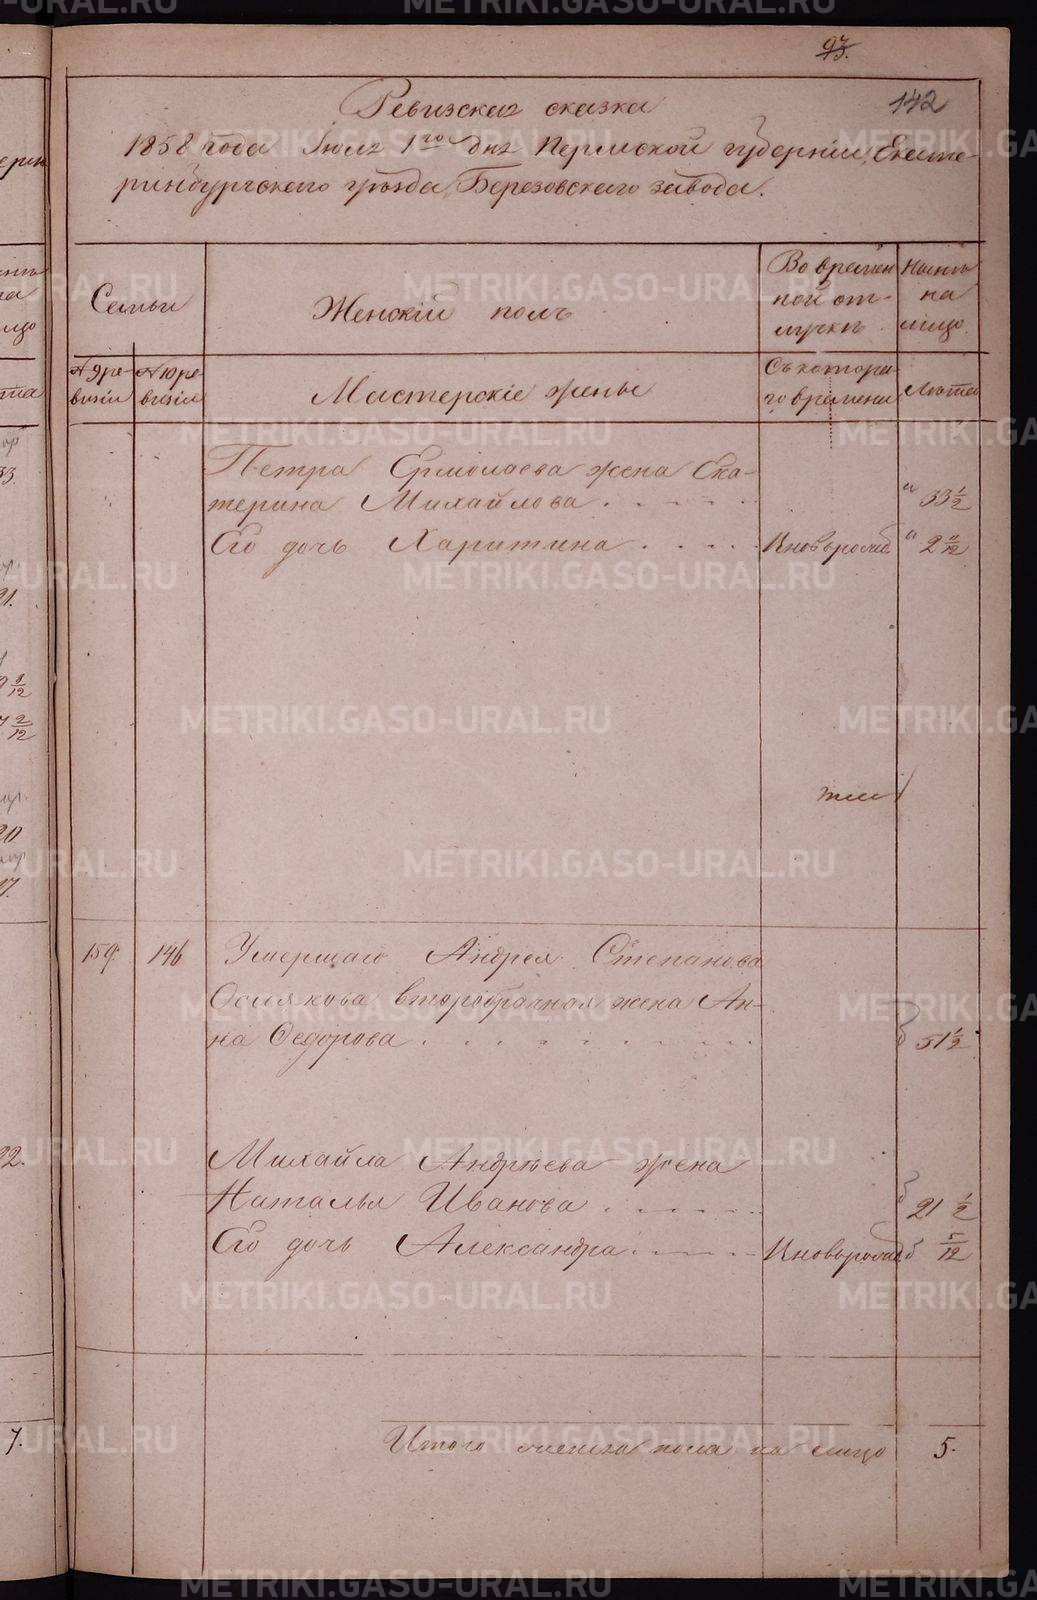 93.
142
Ревизская сказка
1858 года Июля 1го дня Пермской губернии, Екате-
ринбургскаго уѣзда, Березовскаго завода.
Семьи
Женскій полъ
Во времен
ной от-
лучкѣ
Налицо
на
лицо
№ 9 ре-
визіи
№ 10 ре-
визіи
Мастерскіе жены
Съ котора-
го времени
Лѣта
Петра Ермолаева жена Ека-
терина Михайлова
33 1/2
Его дочь Харитина
Кновьрожд
2 11/12
159.
146
Умершаго Андрея Степанова
Осмякова второбрачная жена Ан-
на Федорова
51 1/2
Михайла Андрѣева жена
Наталья Иванова
21 1/2
Его дочь Александра
Кновьрожд
5/12
Итого женска пола на лицо
5.
METRIKI.GASO-URAL.RU